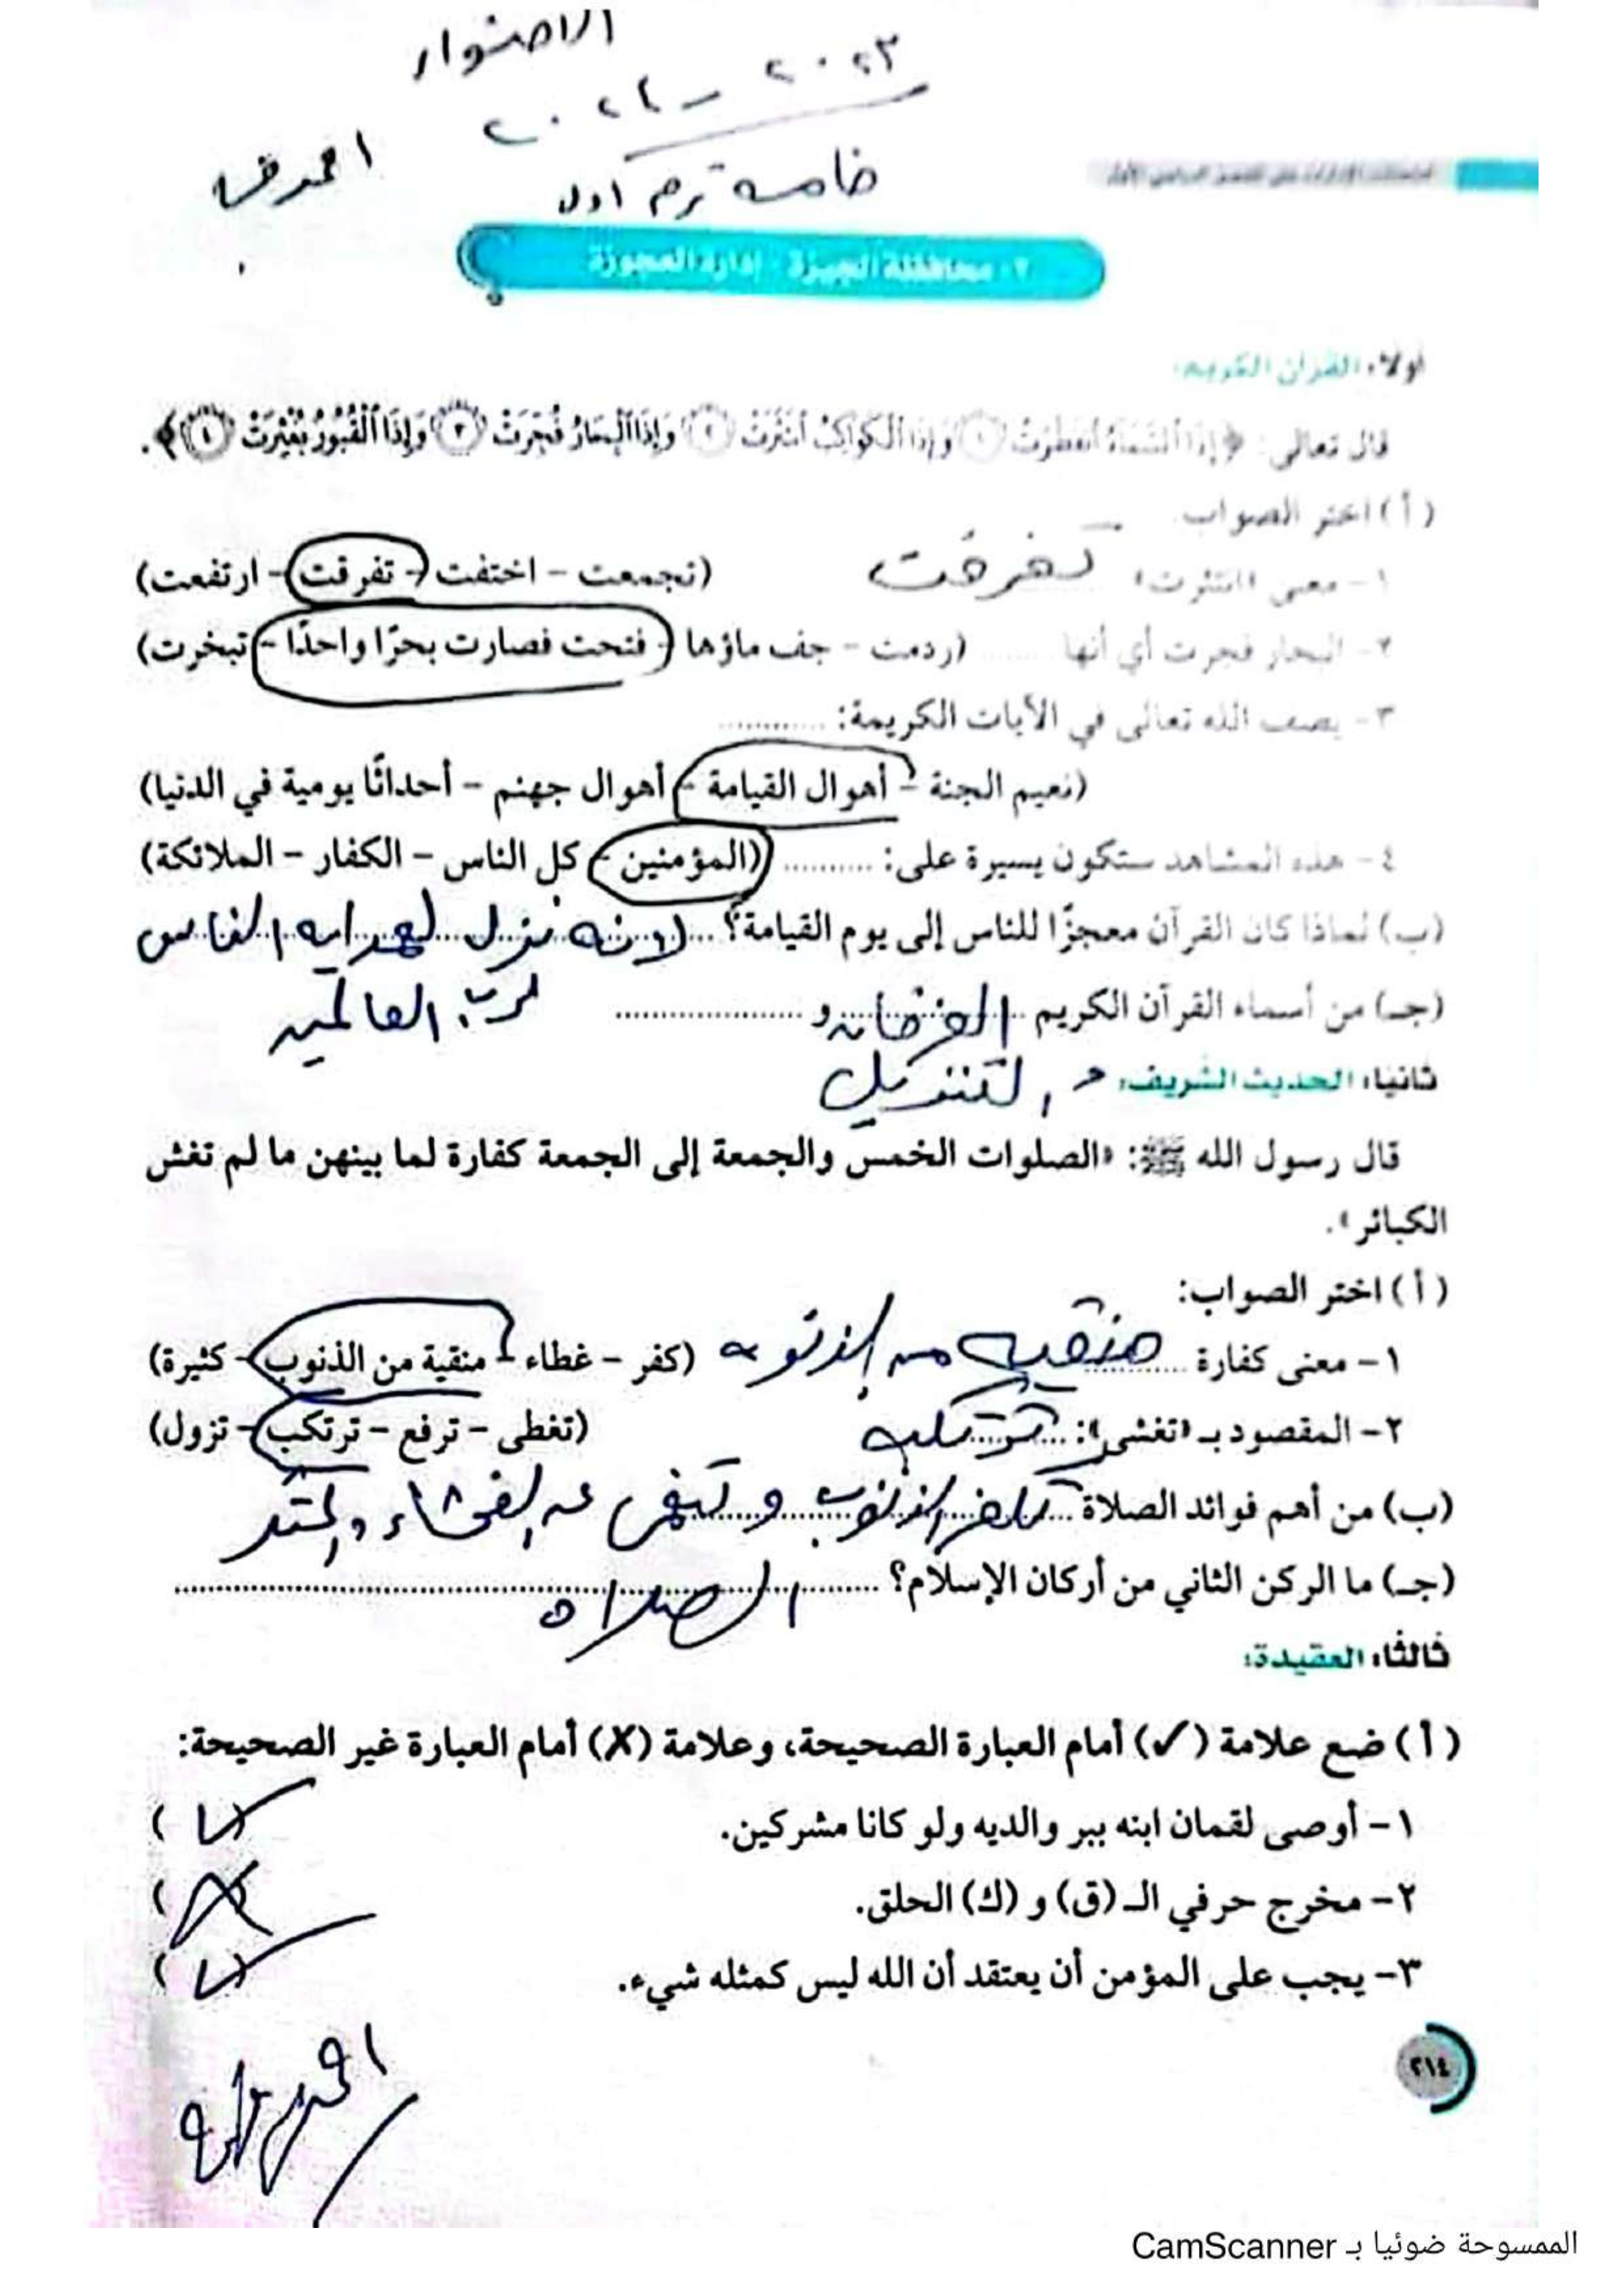 ٢٠٢٣ - ٢٠٢٤
خامسه ترم اول
٢- محافظة الجيزة - إدارة العجوزة
أولاً: القرآن الكريم:
قال تعالى: ﴿إِذَا ٱلسَّمَآءُ ٱنفَطَرَتۡ ١ وَإِذَا ٱلۡكَوَاكِبُ ٱنتَثَرَتۡ ٢ وَإِذَا ٱلۡبِحَارُ فُجِّرَتۡ ٣ وَإِذَا ٱلۡقُبُورُ بُعۡثِرَتۡ ٤﴾.
(أ) اختر الصواب:
١- معنى «انتثرت» تفرقت (تجمعت - اختفت - تفرقت - ارتفعت)
٢- البحار فجرت أي أنها ...... (ردمت - جف ماؤها - فتحت فصارت بحرًا واحدًا - تبخرت)
٣- يصف الله تعالى في الآيات الكريمة: ..........
(نعيم الجنة - أهوال القيامة - أهوال جهنم - أحداثًا يومية في الدنيا)
٤- هذه المشاهد ستكون يسيرة على: .......... (المؤمنين - كل الناس - الكفار - الملائكة)
(ب) لماذا كان القرآن معجزًا للناس إلى يوم القيامة؟ لانه نزل لهدايه الناس
لرب العالمين
(جـ) من أسماء القرآن الكريم الفرقان و ..................
ثانيًا: الحديث الشريف: التنزيل
قال رسول الله ﷺ: «الصلوات الخمس والجمعة إلى الجمعة كفارة لما بينهن ما لم تغش
الكبائر».
(أ) اختر الصواب:
١- معنى كفارة منقيه من الذنوب (كفر - غطاء - منقية من الذنوب - كثيرة)
٢- المقصود بـ «تغشى»: ترتكب (تغطى - ترفع - ترتكب - تزول)
(ب) من أهم فوائد الصلاة تكفر الذنوب و تنهى عن الفحشاء والمنكر
(جـ) ما الركن الثاني من أركان الإسلام؟ الصلاه
ثالثًا: العقيدة:
(أ) ضع علامة (✓) أمام العبارة الصحيحة، وعلامة (✗) أمام العبارة غير الصحيحة:
١- أوصى لقمان ابنه ببر والديه ولو كانا مشركين. (✓)
٢- مخرج حرفي الـ (ق) و (ك) الحلق. (✗)
٣- يجب على المؤمن أن يعتقد أن الله ليس كمثله شيء. (✓)
٢١٤
الممسوحة ضوئيا بـ CamScanner